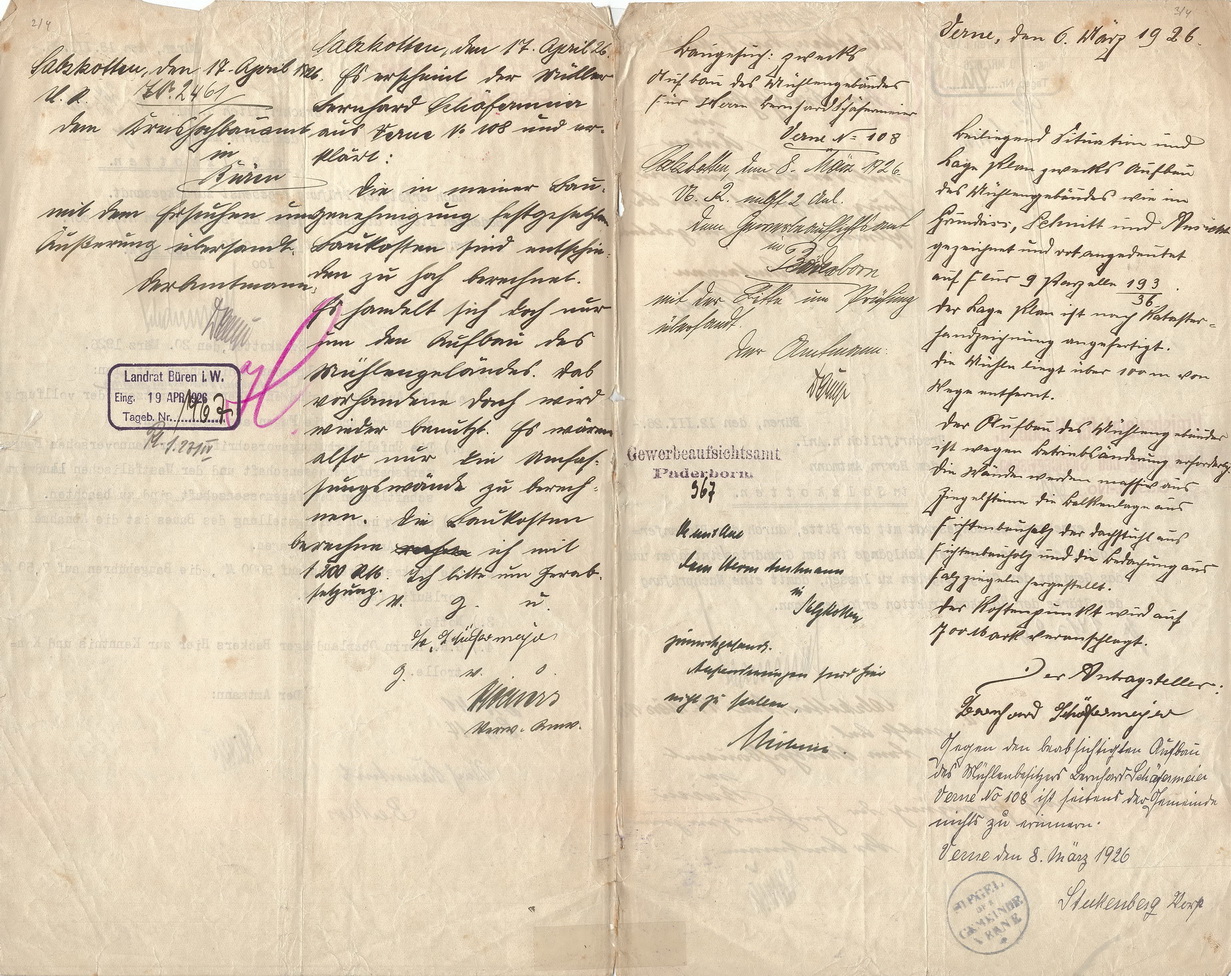 2/4
Salzkotten, den 17. April 1926.
U. R. J.N. 2461
dem Kreishochbauamt
in
Büren
mit dem Ersuchen um
Äußerung übersandt.
Der Amtmann,
Landrat Büren i. W.
Eing. 19 APR 1926
Tageb. Nr. 1967
Salzkotten, den 17. April 26.
Es erscheint der Müller
Bernhard Schäfermeier
aus Verne Nr 108 und er-
klärt:
Die in meiner Bau-
genehmigung festgesetzten
Baukosten sind entschie-
den zu hoch berechnet.
Es handelt sich doch nur
um den Aufbau des
Mühlengebäudes. Das
vorhandene Dach wird
wieder benutzt. Es wären
also nur die Umfas-
sungswände zu berech-
nen. Die Baukosten
berechne ich mit
1200 Mk. Ich bitte um Herab-
setzung.
v. g. u.
Schäfermeier
g. w. o.
Verw.
3/4
Baugesuch: zwecks
Aufbau des Mühlengebäudes
für Herrn Bernhard Schäfermeier
Verne No 108
Salzkotten, den 8. März 1926.
U. R. nebst 2 Anl.
dem Gewerbeaufsichtsamt
in
Paderborn
mit der Bitte um Prüfung
übersandt.
Der Amtmann.
Gewerbeaufsichtsamt
Paderborn
967
dem Herrn Amtmann
in
Salzkotten
zurückgesandt.
Anforderungen sind hier
nicht zu stellen.
Verne, den 6. März 1926.
Beiliegend Situation und
Lage Plan zwecks Aufbau
des Mühlengebäudes wie im
Grundriss, Schnitt und Ansicht
gezeichnet und rot angedeutet
auf Flur 9 Parzelle 193/36.
Der Lage Plan ist nach Kataster-
handzeichnung angefertigt.
Die Mühle liegt über 100 m vom
Wege entfernt.
Der Aufbau des Mühlengebäudes
ist wegen Betriebsänderung erforderl.
Die Wände werden massiv aus
Ziegelsteine die Balkenlage aus
Fichtenbauholz der Dachstuhl aus
Fichtenbauholz und die Bedachung aus
Falzziegeln hergestellt.
Der Kostenpunkt wird auf
700 Mark veranschlagt.
Der Antragsteller:
Bernhard Schäfermeier
Gegen den beabsichtigten Aufbau
des Mühlenbesitzers Bernhard Schäfermeier
Verne No 108 ist seitens der Gemeinde
nichts zu erinnern.
Verne den 8. März 1926
Stukenberg Vorst
SIEGEL DER GEMEINDE VERNE